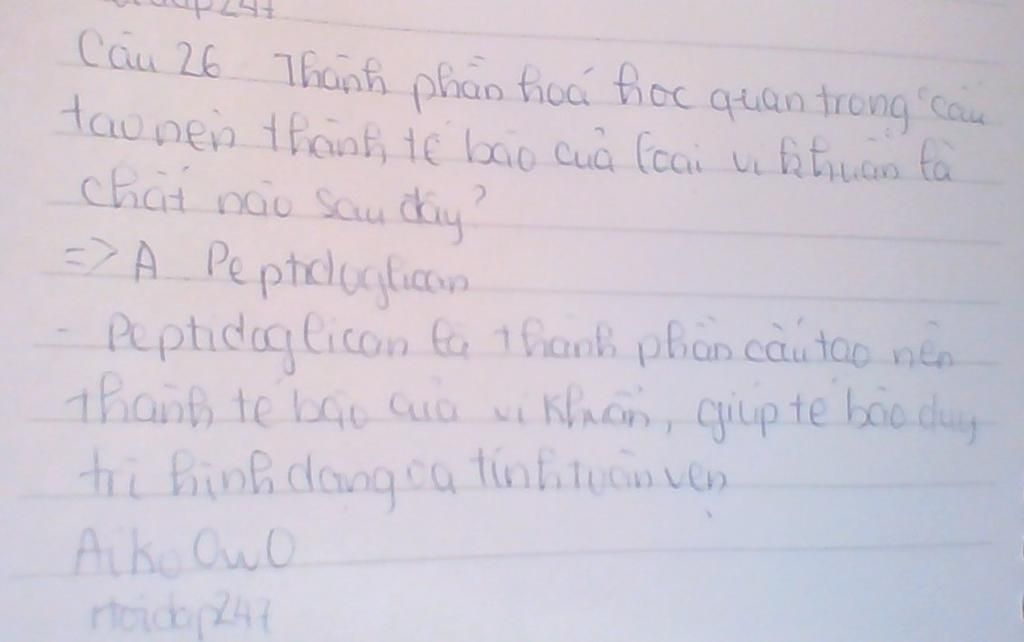 Câu 26 Thành phần hoá học quan trọng cấu
tạo nên thành tế bào của loại vi khuẩn là
chất nào sau đây?
=> A Peptidoglican
- Peptidoglican là thành phần cấu tạo nên
thành tế bào của vi khuẩn, giúp tế bào duy
trì hình dạng và tính toàn vẹn
Aiko OwO
hoidap247